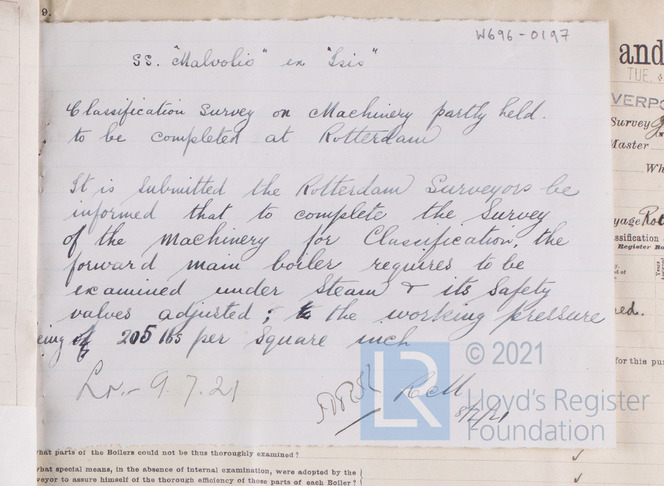 9.
W696-0197
SS. "Malvolio" ex "Isis"
Classification Survey on Machinery partly held.
to be completed at Rotterdam
It is submitted the Rotterdam Surveyors be
informed that to complete the Survey
of the Machinery for Classification, the
forward main boiler requires to be
examined under Steam & its Safety
valves adjusted; to the working pressure
eing of 205 lbs per Square inch
Lr. - 9.7.21
RCM
8/7/21
© 2021
LR
Lloyd's Register
Foundation
and
TUE.
VERPO
Survey
Master
Wh
yage Ro
ssification
Register Bo
ed.
for this pur
what parts of the Boilers could not be thus thoroughly examined?
what special means, in the absence of internal examination, were adopted by the
veyor to assure himself of the thorough efficiency of those parts of each Boiler?